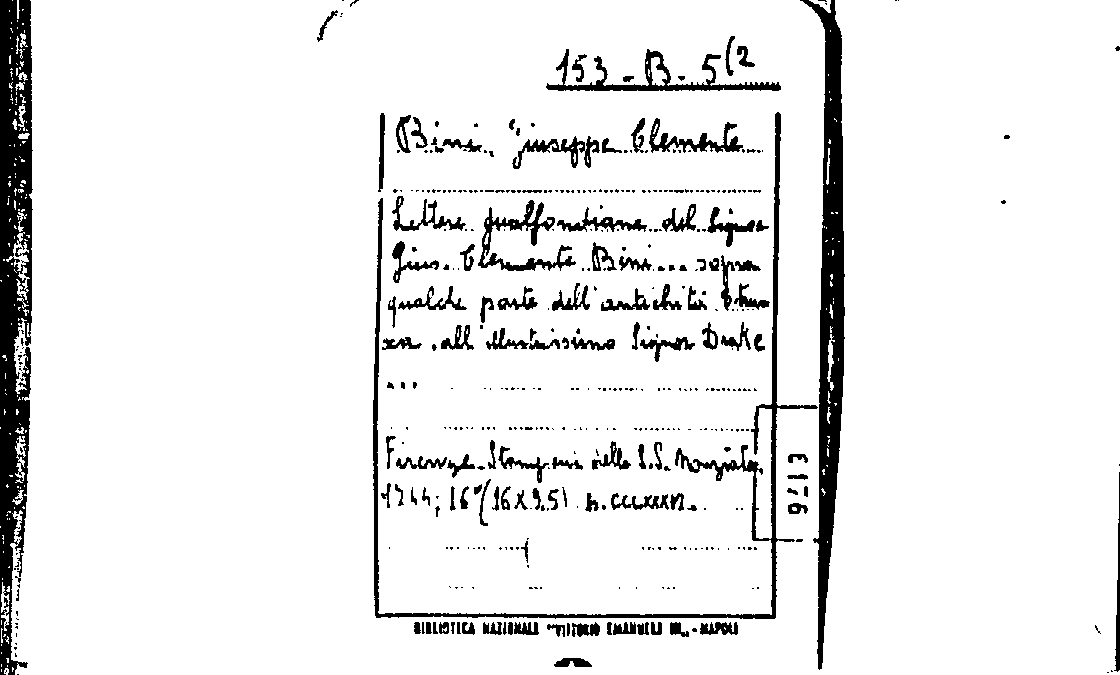 153 - B - 5(2
Bini, Giuseppe Clemente
Lettere gualfondiane del Signor
Gius. Clemente Bini... sopra
qualche parte dell'antichità Etrus
ca all'illustrissimo Signor Drake
...
Firenze. Stamperia della S.S. Nunziata,
1744; 16° (16x9,5) p.
E1176
BIBLIOTECA NAZIONALE "VITTORIO EMANUELE III„ - NAPOLI